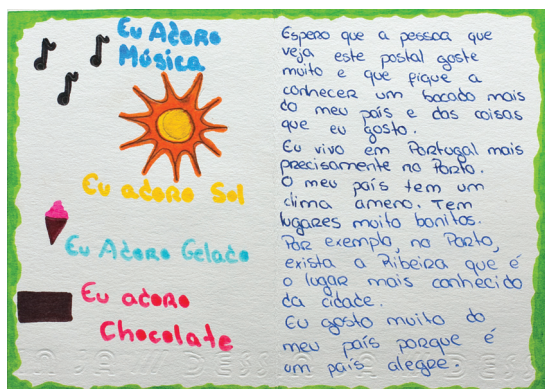 Eu Adoro
Música
Eu adoro Sol
Eu Adoro Gelado
Eu adoro
Chocolate
Espero que a pessoa que
veja este postal goste
muito e que fique a
conhecer um bocado mais
do meu país e das coisas
que eu gosto.
Eu vivo em Portugal mais
precisamente no Porto.
O meu país tem um
clima ameno. Tem
lugares muito bonitos.
Por exemplo, no Porto,
exista a Ribeira que é
o lugar mais conhecido
da cidade.
Eu gosto muito do
meu país porque é
um país alegre.